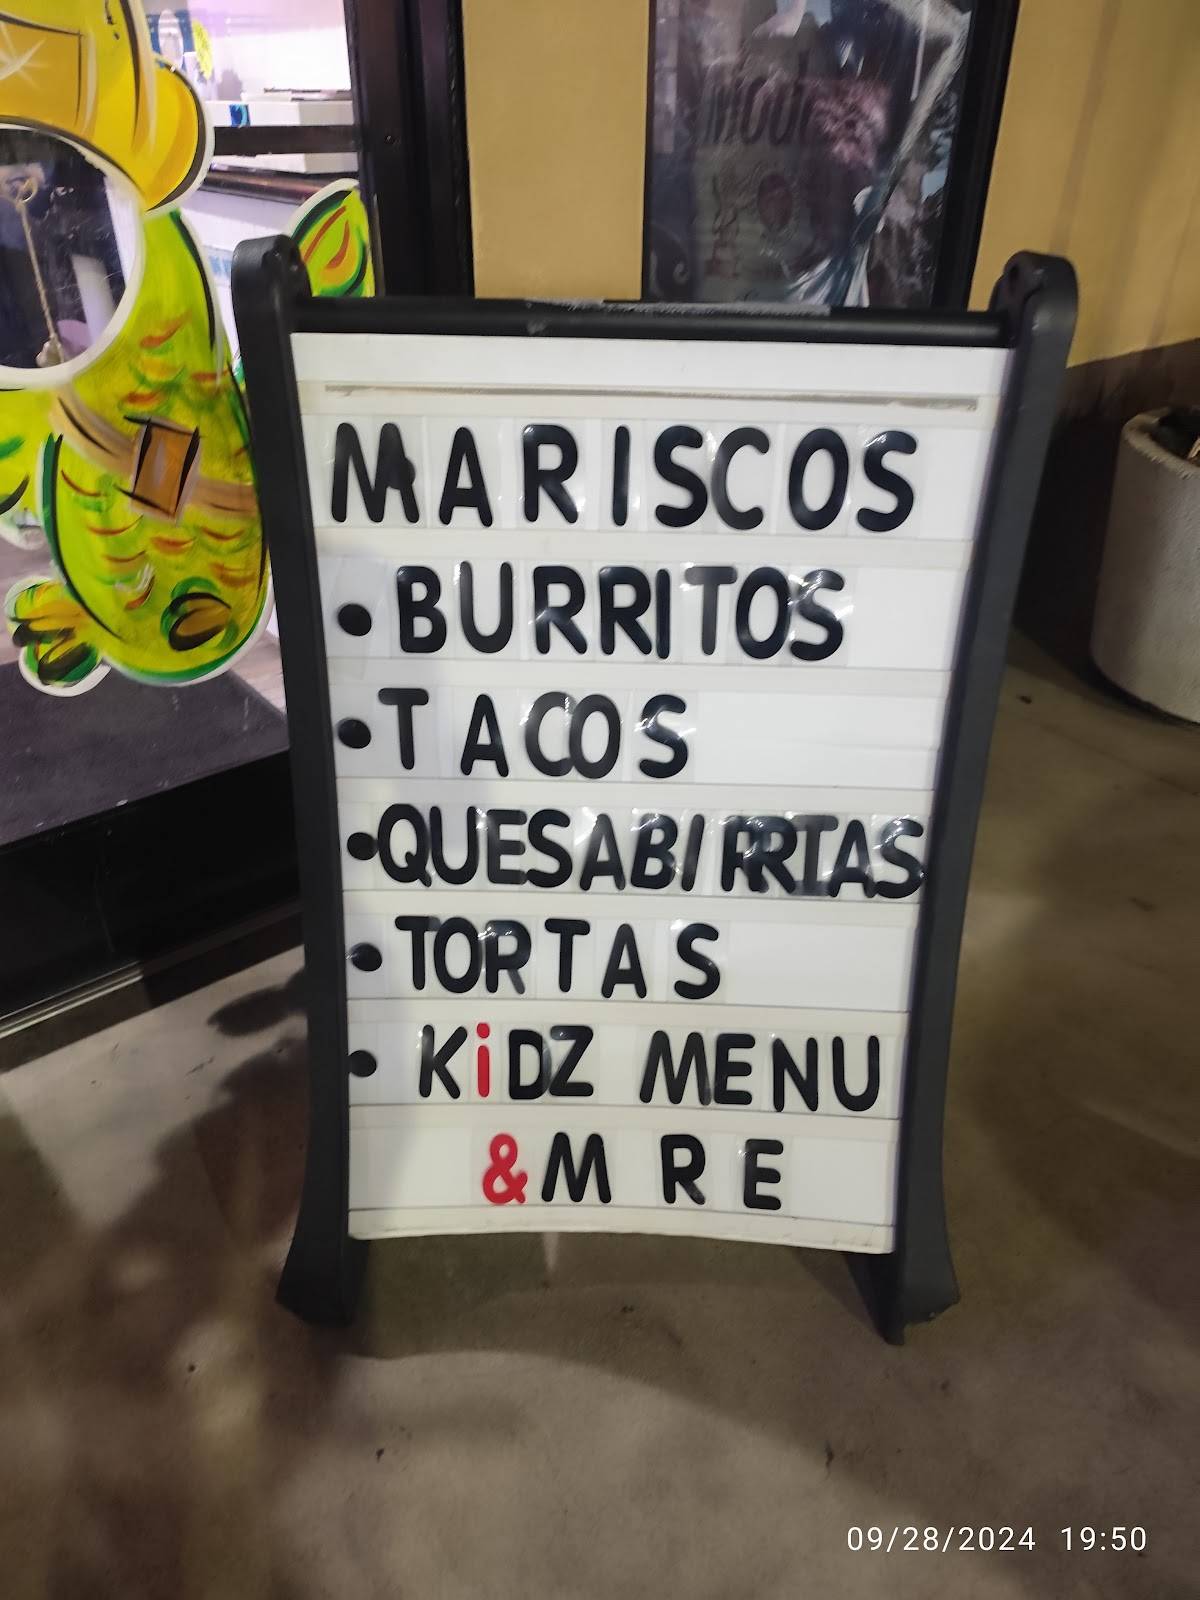 MARISCOS
• BURRITOS
• TACOS
• QUESABIRRIAS
• TORTAS
• KiDZ MENU
&M RE
09/28/2024 19:50